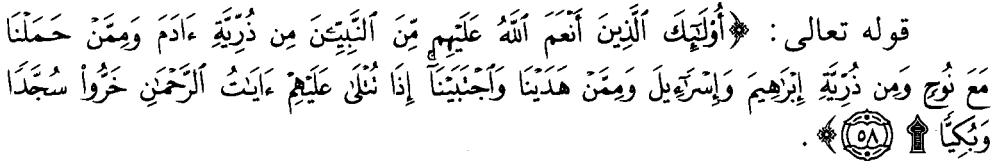 قوله تعالى: ﴿أُوْلَٰٓئِكَ ٱلَّذِينَ أَنۡعَمَ ٱللَّهُ عَلَيۡهِم مِّنَ ٱلنَّبِيِّـۧنَ مِن ذُرِّيَّةِ ءَادَمَ وَمِمَّنۡ حَمَلۡنَا
مَعَ نُوحٖ وَمِن ذُرِّيَّةِ إِبۡرَٰهِيمَ وَإِسۡرَٰٓءِيلَ وَمِمَّنۡ هَدَيۡنَا وَٱجۡتَبَيۡنَآۚ إِذَا تُتۡلَىٰ عَلَيۡهِمۡ ءَايَٰتُ ٱلرَّحۡمَٰنِ خَرُّواْۤ سُجَّدٗا
وَبُكِيّٗا ۩ ٥٨﴾.